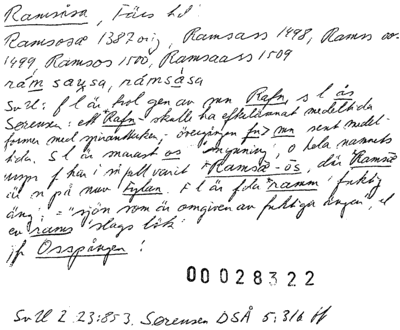 Ramsåsa, Färs hd
Ramsosæ 1387 orig, Ramsass 1498, Rams oos
1499, Ramsos 1500, Ramsaass 1509
råm sausa, råmsåsa
SvU: f l är trol gen av mn Rafn, s l ås
Sørensen: ett Rafn- skulle ha efterlämnat medeltida
former med spirantteckn; övergången fn > mn sent medel-
tida. S l är snarast os 'mynning', o hela namnets
urspr f har i så fall varit *Ramsæ-ös, där *Ramsæ
är n på nuv Fylan. F l är fda *ramm, fuktig
äng; = "sjön som är omgiven av fuktiga ängar", el
ev rams 'slags lök'
jfr Osspången!
00028322
SvU 2. 23:853. Sørensen DSÅ 5:316 ff